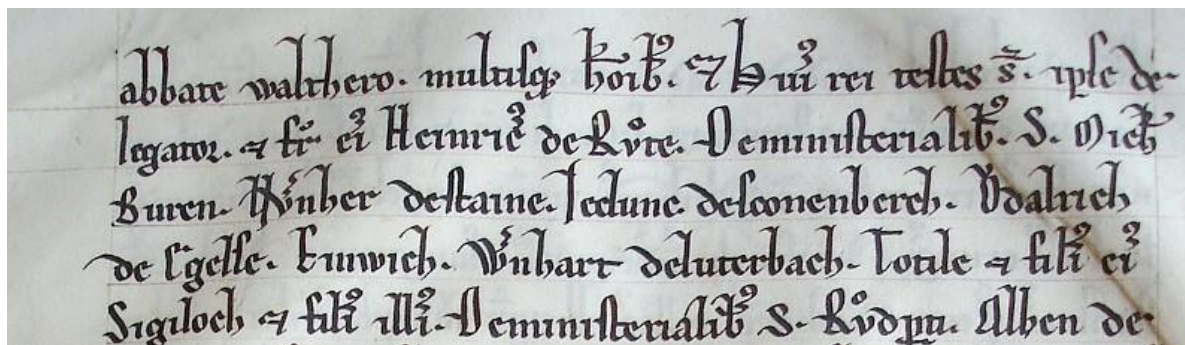 abbate walthero. multisq; hoib3. ⁊ h ui9 rei testes s̄. ipse de-
legator. ⁊ fr̄ ei9 Heinric9 de Růte. De ministerialib9. S. Mich
Buren. de staine. de sconenberch. Vdalrich
de Egelse. Enwich. de luterbach. Totile ⁊ fili9 ei9
Sigiloch ⁊ fili9 illi9. De ministerialib9 S. Růdpti. Alben de